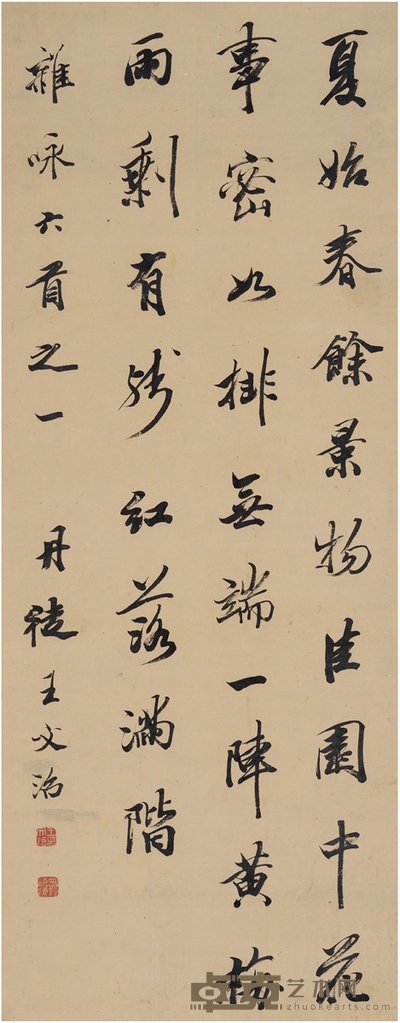 夏始春餘景物佳園中花
事密如排無端一陣黃梅
雨剩有殘紅落滿階
雜咏六首之一 丹徒王文治
卓克艺术网
zhuokearts.com